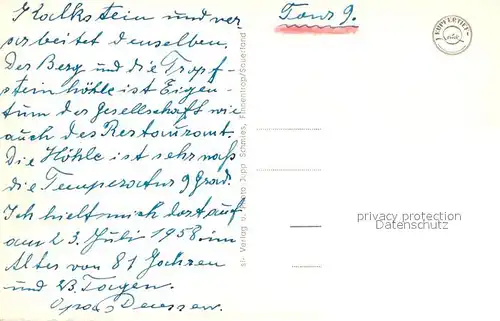 Kalkstein und ver
arbeitet denselben.
Der Berg und die Tropf-
steinhöhle ist Eigen-
tum der Gesellschaft wie
auch das Restaurant.
Die Höhle ist sehr naß
die Temperatur 9 Grad.
Ich hielt mich dort auf
am 23. Juli 1958 im
Alter von 81 Jahren
und 23 Tagen.
Opa Deussen.
Tour 9.
Verlag u. Foto Jupp Schmies, Finnentrop/Sauerland
KUPFERTIEF-
privacy protection
Datenschutz